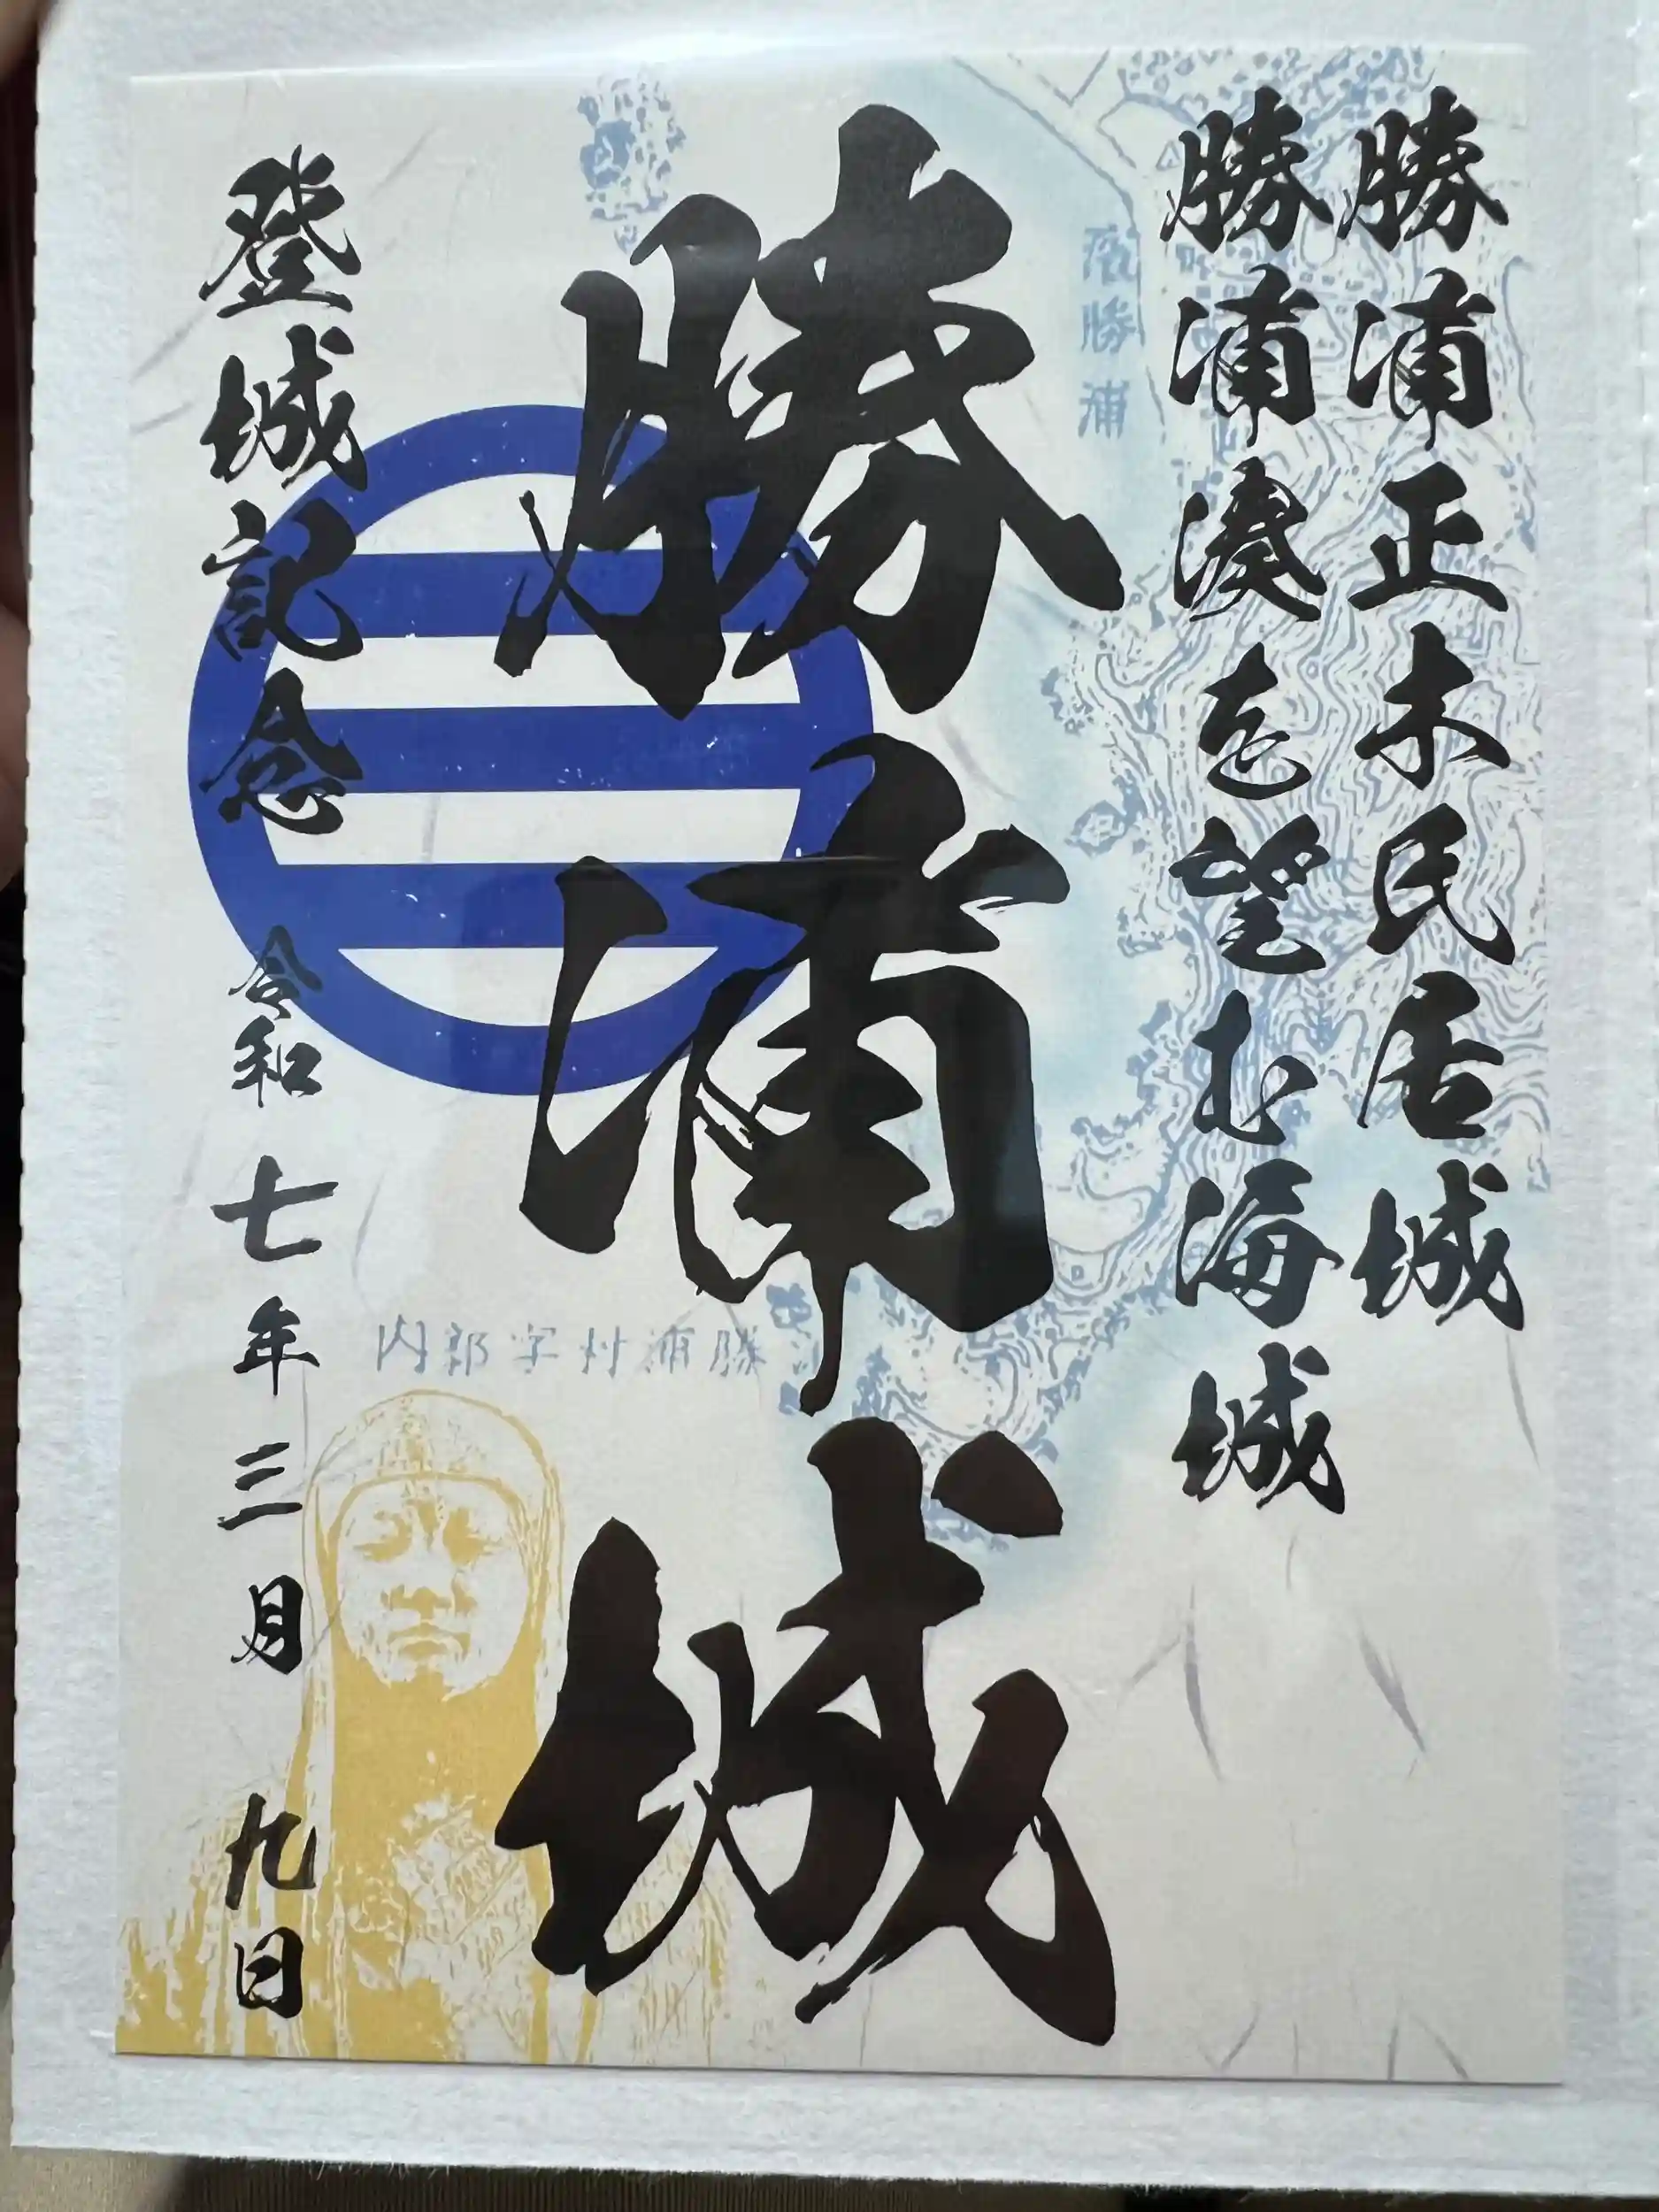 勝浦正木民居城
勝浦湊を望む海城
勝浦城
登城記念 令和七年三月九日
勝浦
勝浦村字郭内